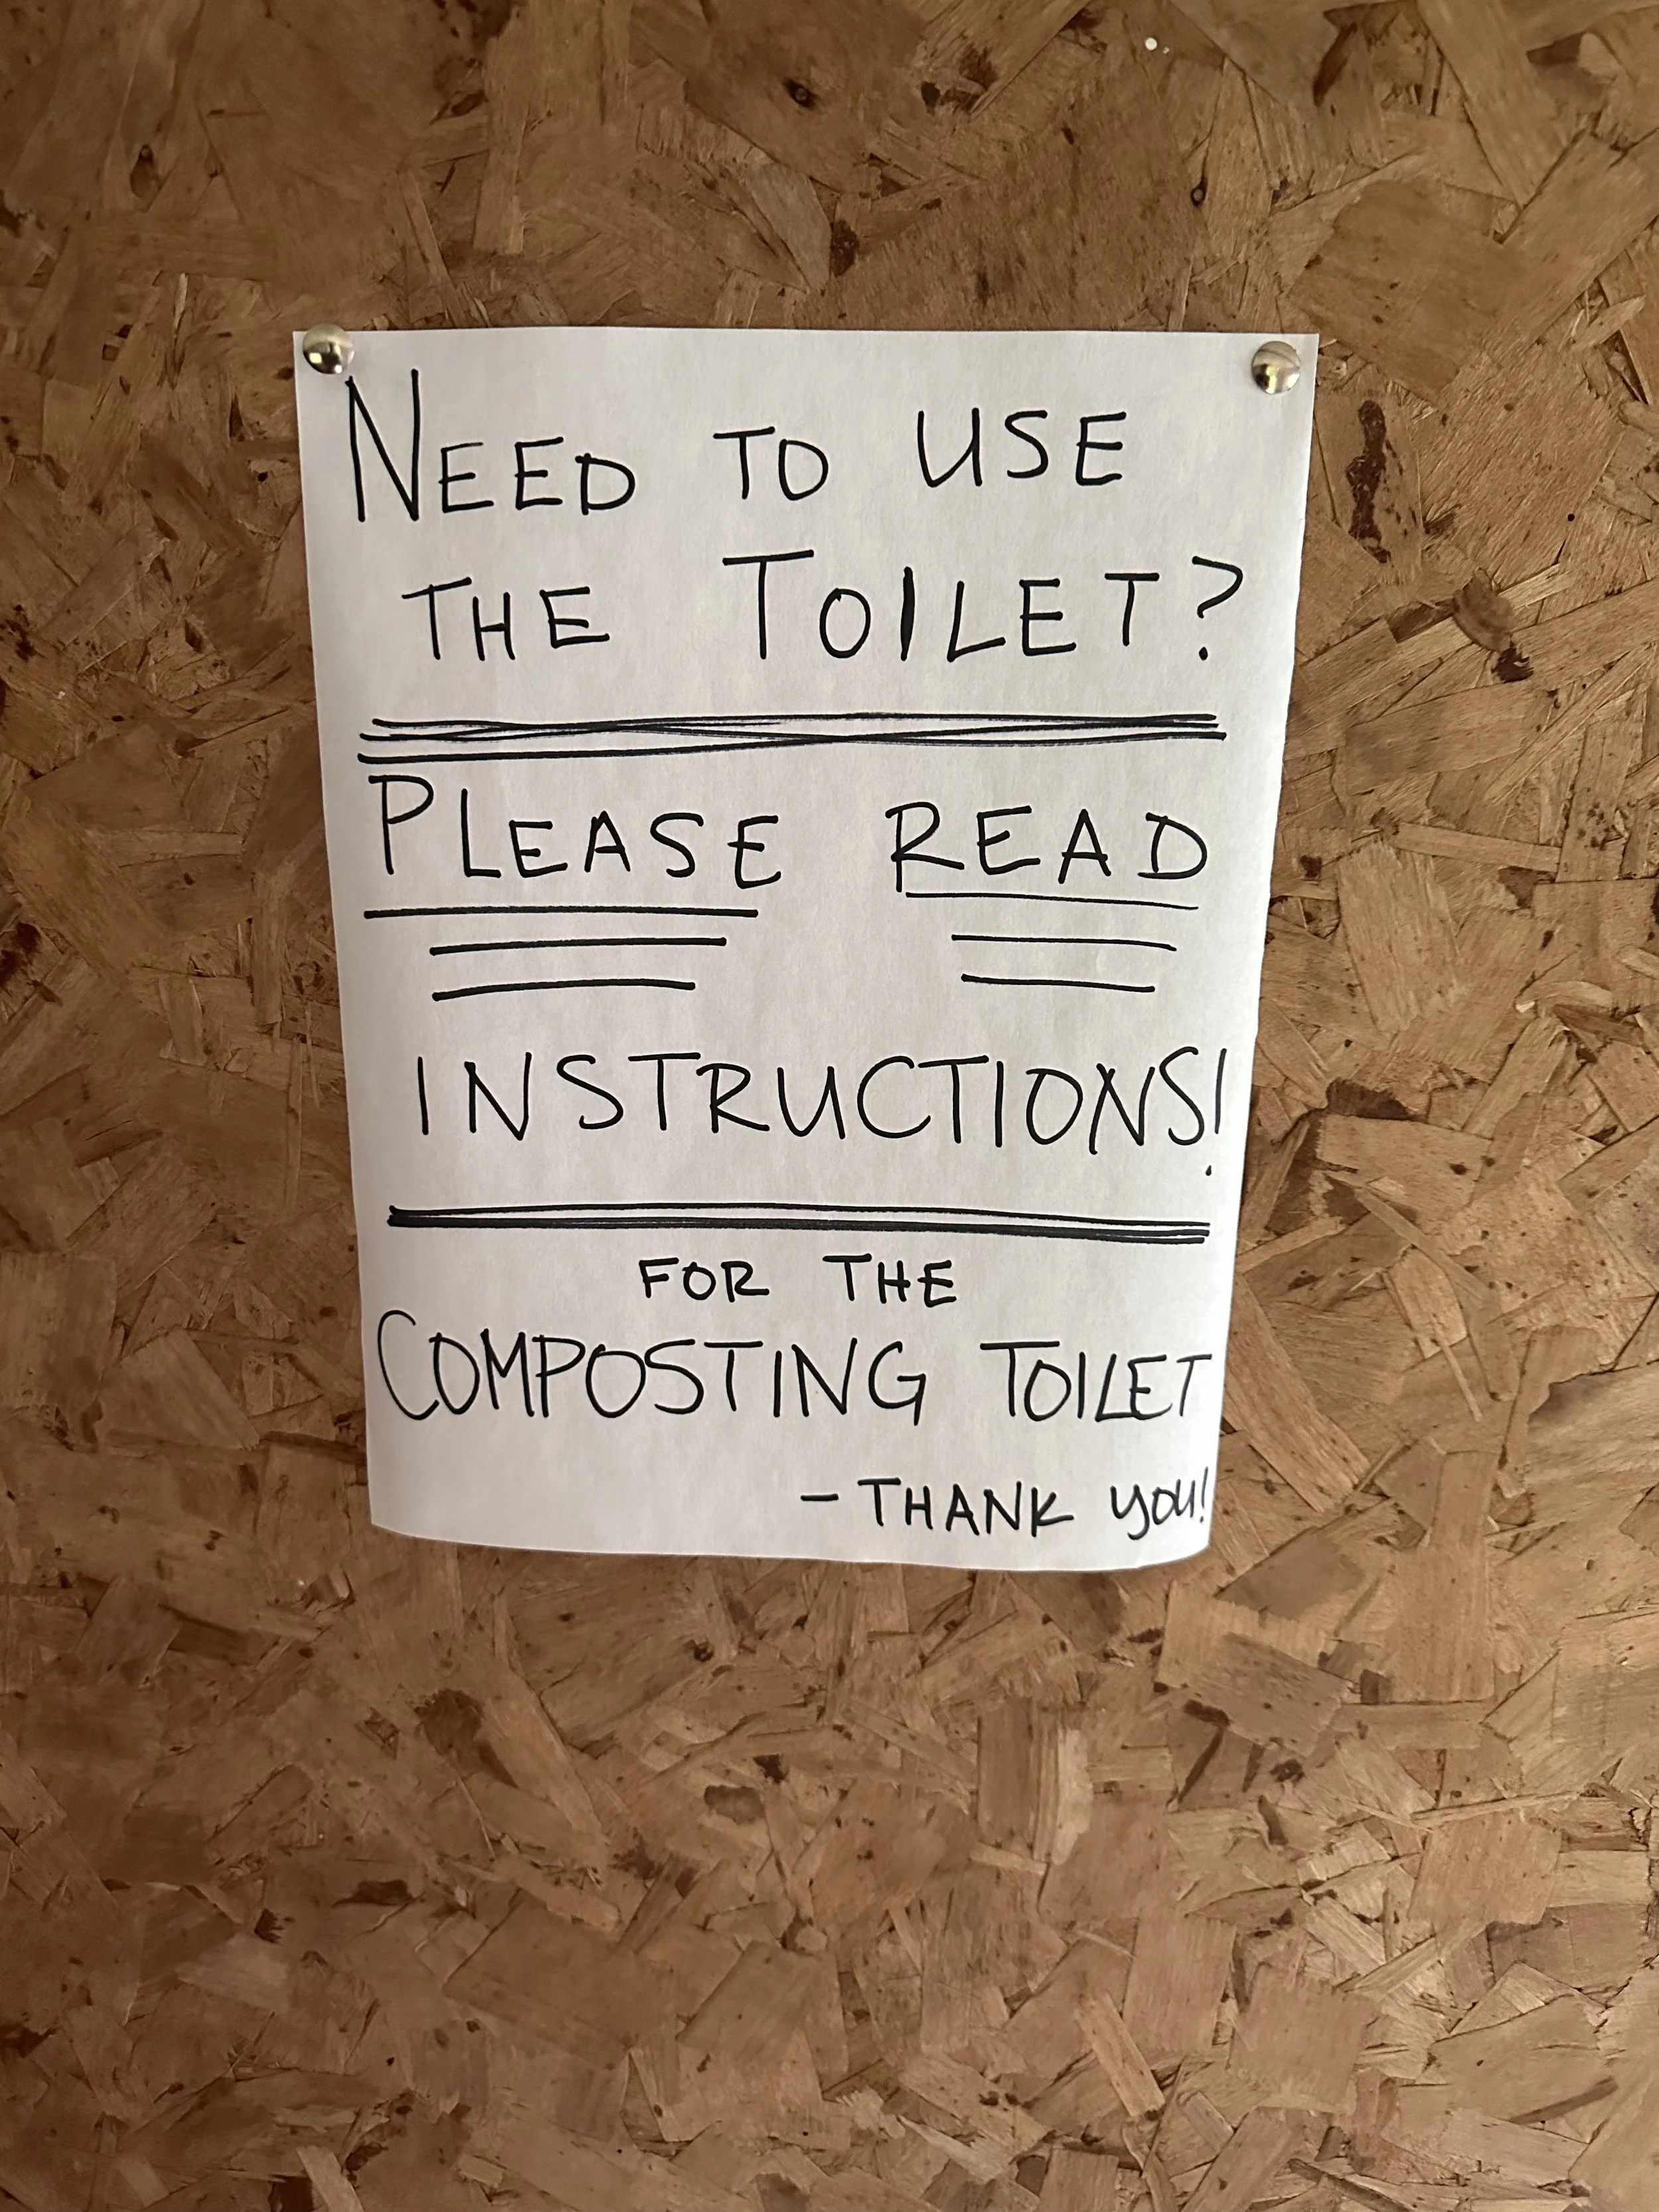 NEED TO USE
THE TOILET?
PLEASE READ
INSTRUCTIONS!
FOR THE
COMPOSTING TOILET
- THANK YOU!